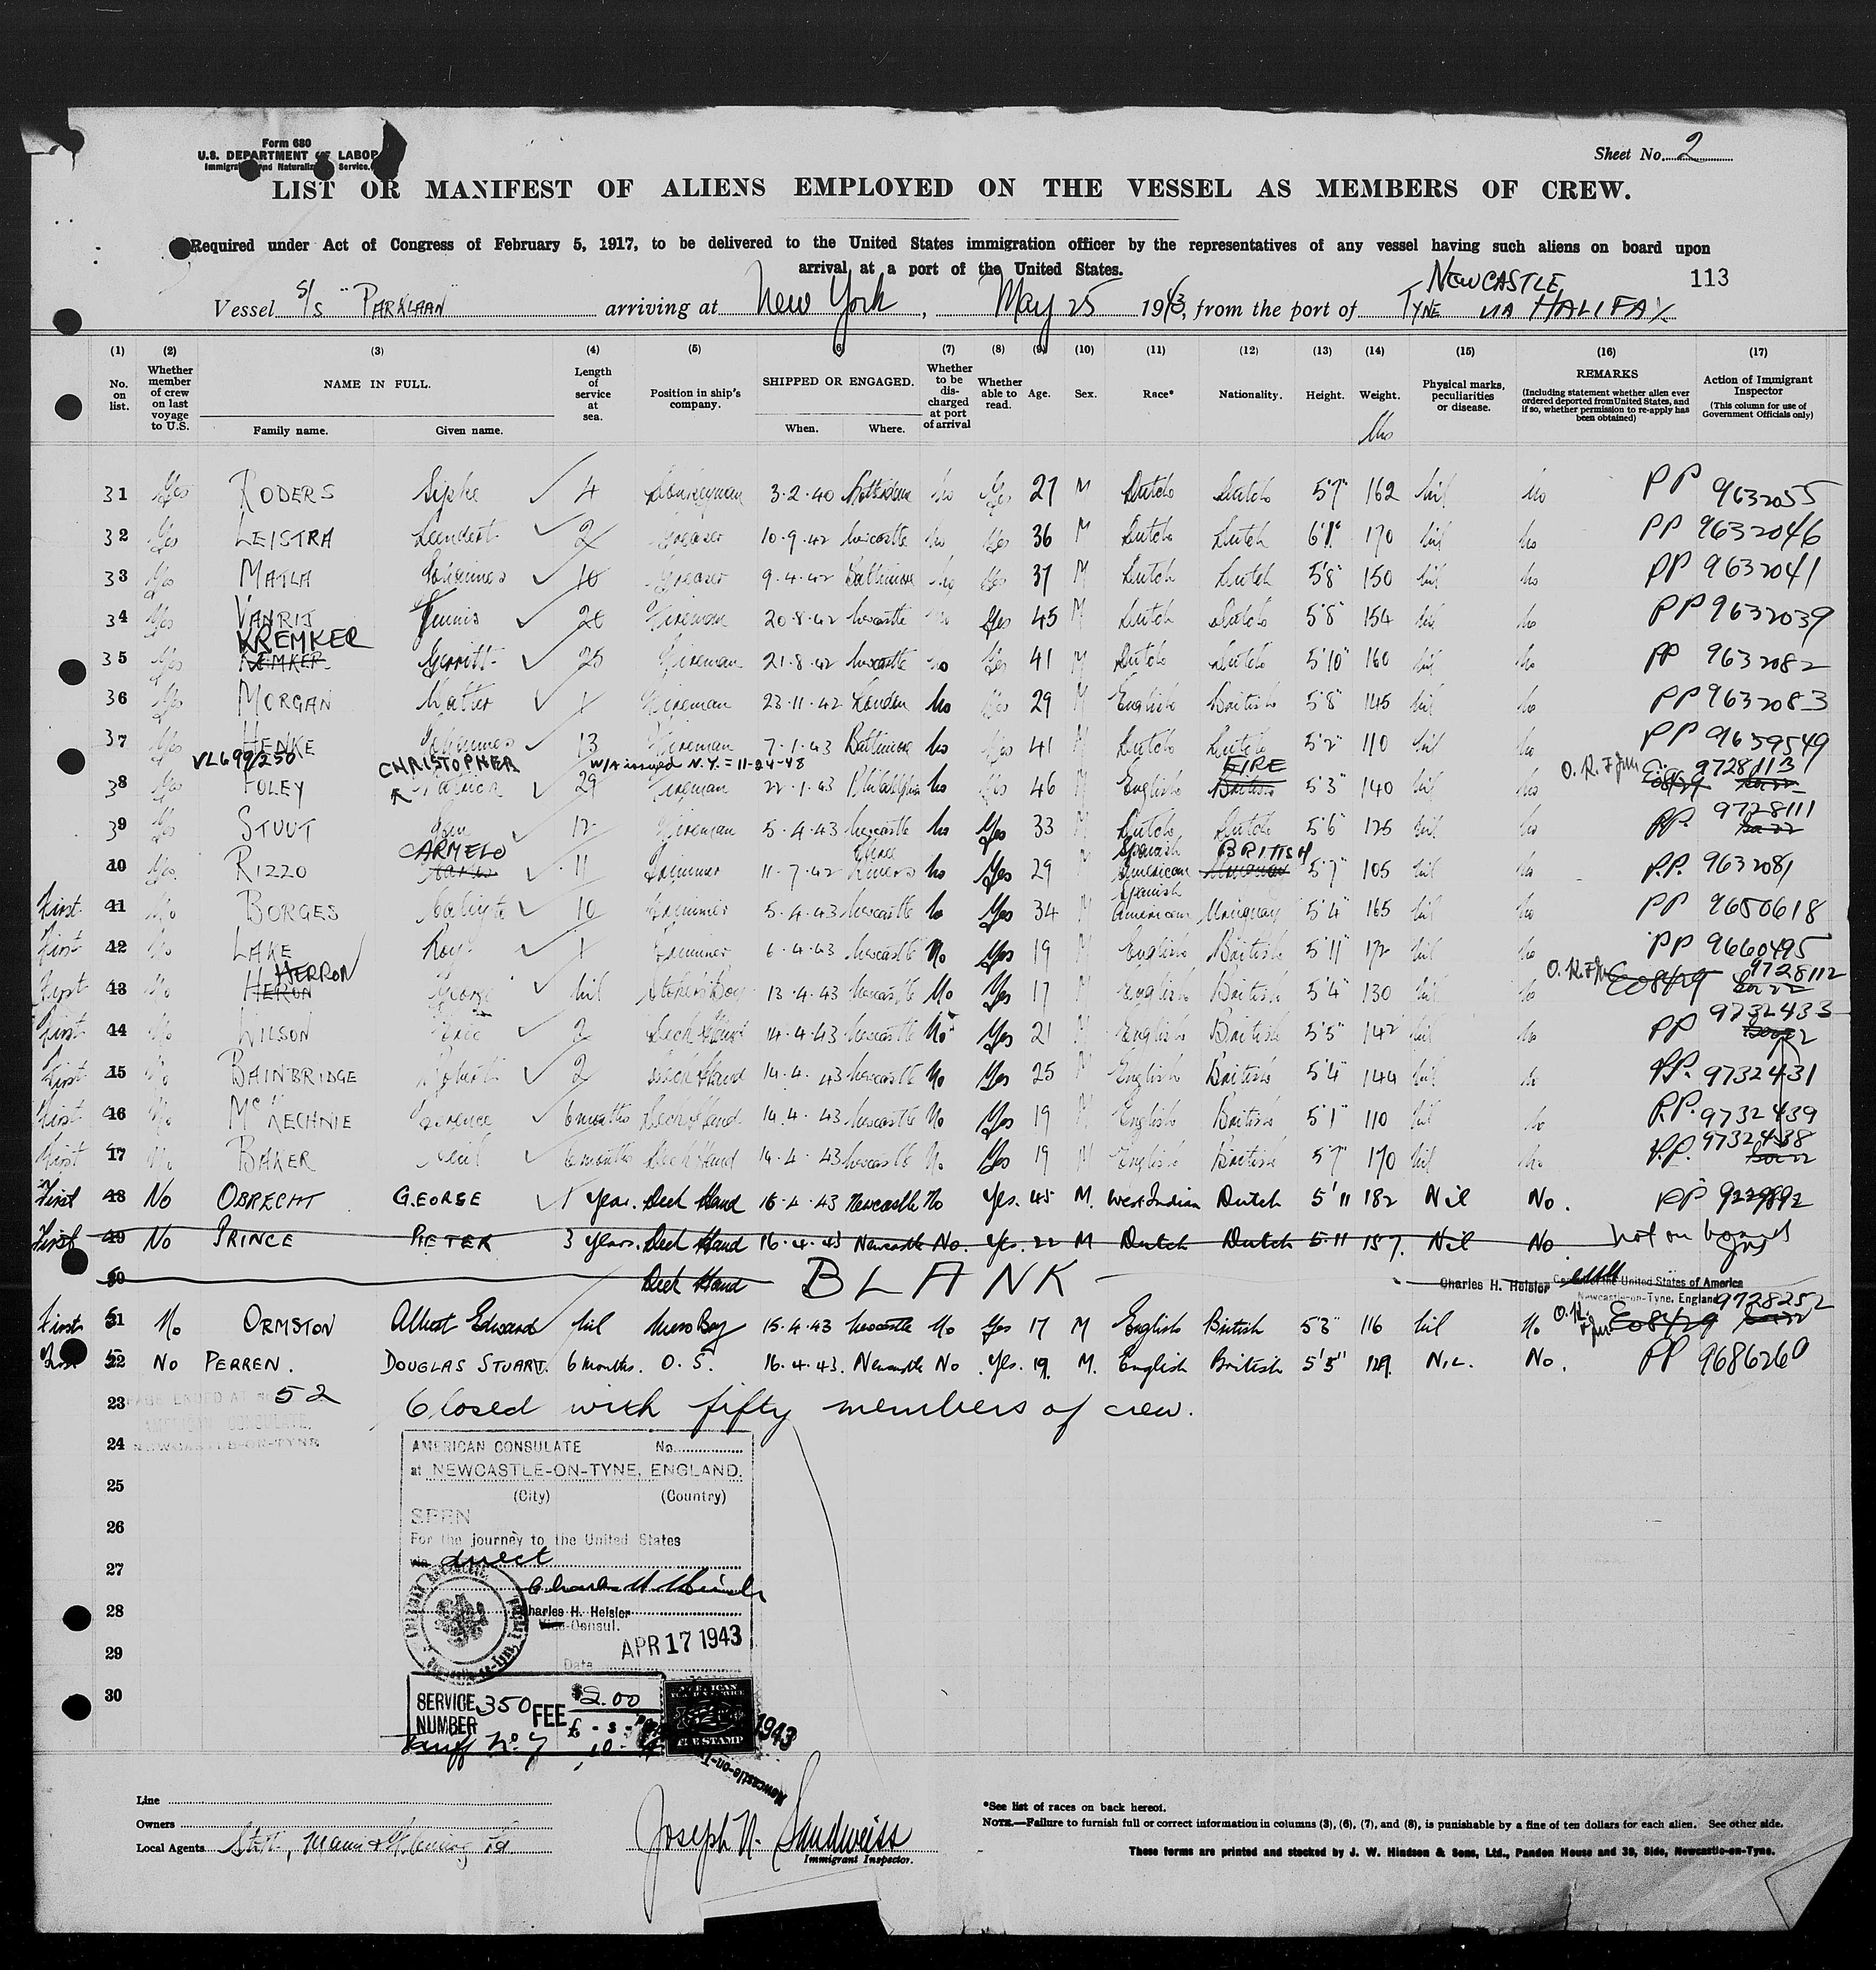 Form 680
U.S. DEPARTMENT OF LABOR
Immigration and Naturalization Service.
Sheet No. 2
LIST OR MANIFEST OF ALIENS EMPLOYED ON THE VESSEL AS MEMBERS OF CREW.
Required under Act of Congress of February 5, 1917, to be delivered to the United States immigration officer by the representatives of any vessel having such aliens on board upon
arrival at a port of the United States.
113
Vessel S/S "PARKLAAN" arriving at New York, May 25 1943, from the port of NEWCASTLE TYNE VIA HALIFAX
(1) (2) (3) (4) (5) 6 (7) (8) (9) (10) (11) (12) (13) (14) (15) (16) (17)
No. on list. Whether member of crew on last voyage to U.S. NAME IN FULL. Family name. Given name. Length of service at sea. Position in ship's company. SHIPPED OR ENGAGED. When. Where. Whether to be discharged at port of arrival Whether able to read. Age. Sex. Race* Nationality. Height. Weight. Physical marks, peculiarities or disease. REMARKS (Including statement whether alien ever ordered deported from United States, and if so, whether permission to re-apply has been obtained) Action of Immigrant Inspector (This column for use of Government Officials only)
lbs
31 Yes RODERS Sipke 4 Donkeyman 3.2.40 Rotterdam no Yes 27 M Dutch Dutch 5'7" 162 nil no PP 9632055
32 Yes LEISTRA Leendert 2 Greaser 10.9.42 Newcastle no Yes 36 M Dutch Dutch 6'1" 170 nil no PP 9632046
33 Yes MATLA Johannes 10 Greaser 9.4.42 Baltimore no Yes 37 M Dutch Dutch 5'8" 150 nil no PP 9632041
34 Yes VANRIJ Teunis 20 Fireman 20.8.42 Newcastle no Yes 45 M Dutch Dutch 5'8" 154 nil no PP 9632039
KREMKER
35 Yes KEMKER Gerritt 25 Fireman 21.8.42 Newcastle no Yes 41 M Dutch Dutch 5'10" 160 nil no PP 9632082
36 Yes MORGAN Walter 1 Fireman 23.11.42 London no Yes 29 M English British 5'8" 145 nil no PP 9632083
37 Yes HENKE Johannes 13 Fireman 7.1.43 Baltimore no Yes 41 M Dutch Dutch 5'2" 110 nil no PP 9659549
VL699/250 CHRISTOPHER W/A issued N.Y. = 11-24-48 EIRE
38 Yes FOLEY Patrick 29 Fireman 22.1.43 Philadelphia no Yes 46 English British 5'3" 140 nil no O.K. E08429 9728113
39 Yes STUUT Jan 12 Fireman 5.4.43 Newcastle no Yes 33 M Dutch Dutch 5'6" 125 nil no PP. 9728111
CARMELO Three Spanish BRITISH
40 Yes RIZZO 11 Trimmer 11.7.42 Rivers no Yes 29 M American 5'7 105 nil no P.P. 9632081
Spanish
First 41 No BORGES 10 Trimmer 5.4.43 Newcastle no Yes 34 M American Uruguay 5'4" 165 nil no PP 9650618
First 42 No LAKE Roy 1 Trimmer 6.4.43 Newcastle No Yes 19 M English British 5'11" 172 nil no PP 9660495
HERRON
First 43 No HERON George nil Stokers Boy 13.4.43 Newcastle No Yes 17 M English British 5'4" 130 nil no O.K. E08429 9728112
First 44 No WILSON Eric 2 Deck Hand 14.4.43 Newcastle No Yes 21 M English British 5'5" 142 nil no PP 9732433
First 45 No BAINBRIDGE Robert 2 Deck Hand 14.4.43 Newcastle No Yes 25 M English British 5'4" 144 nil no PP. 9732431
First 46 No McKECHNIE Terence 6 months Deck Hand 14.4.43 Newcastle No Yes 19 M English British 5'1" 110 nil no P.P. 9732439
First 47 No BAKER Neil 6 months Deck Hand 14.4.43 Newcastle No Yes 19 M English British 5'7" 170 nil no P.P. 9732438
First 48 No OBRECHT GEORGE 1 year. Deck Hand 16.4.43 Newcastle No Yes. 45 M. West Indian Dutch 5'11 182 Nil No. PP 9229892
First 49 No PRINCE PIETER 3 years. Deck Hand 16.4.43 Newcastle No. Yes. 22 M Dutch Dutch 5.11 157. Nil No not on board
50 Deck Hand BLANK Charles H. Heisler Consul of the United States of America
Newcastle-on-Tyne, England
First 51 No ORMSTON Albert Edward nil Mess Boy 15.4.43 Newcastle No Yes 17 M English British 5'3" 116 nil No O.K. E08429 9728252
First 52 No PERREN. DOUGLAS STUART. 6 months. O.S. 16.4.43. Newcastle No Yes. 19. M. English British 5'5" 129. NIL. No. PP 9686260
23 PAGE ENDED AT 52 Closed with fifty members of crew.
CONSULATE.
24 NEWCASTLE-ON-TYNE
AMERICAN CONSULATE No.
at NEWCASTLE-ON-TYNE, ENGLAND.
25 (City) (Country)
26 SEEN
For the journey to the United States
27 via direct
28 Charles H. Heisler
Vice-Consul.
29 APR 17 1943
Date
30 SERVICE NUMBER 350 FEE $2.00
£ - s -
Tariff No. 7 10
AMERICAN FOREIGN SERVICE
FEE STAMP
1943
Newcastle-on-T
Line
Owners
Local Agents
Joseph N. Sandweiss
Immigrant Inspector.
*See list of races on back hereof.
NOTE.—Failure to furnish full or correct information in columns (3), (6), (7), and (8), is punishable by a fine of ten dollars for each alien. See other side.
These forms are printed and stocked by J. W. Hindson & Sons, Ltd., Pandon House and 39, Side, Newcastle-on-Tyne.